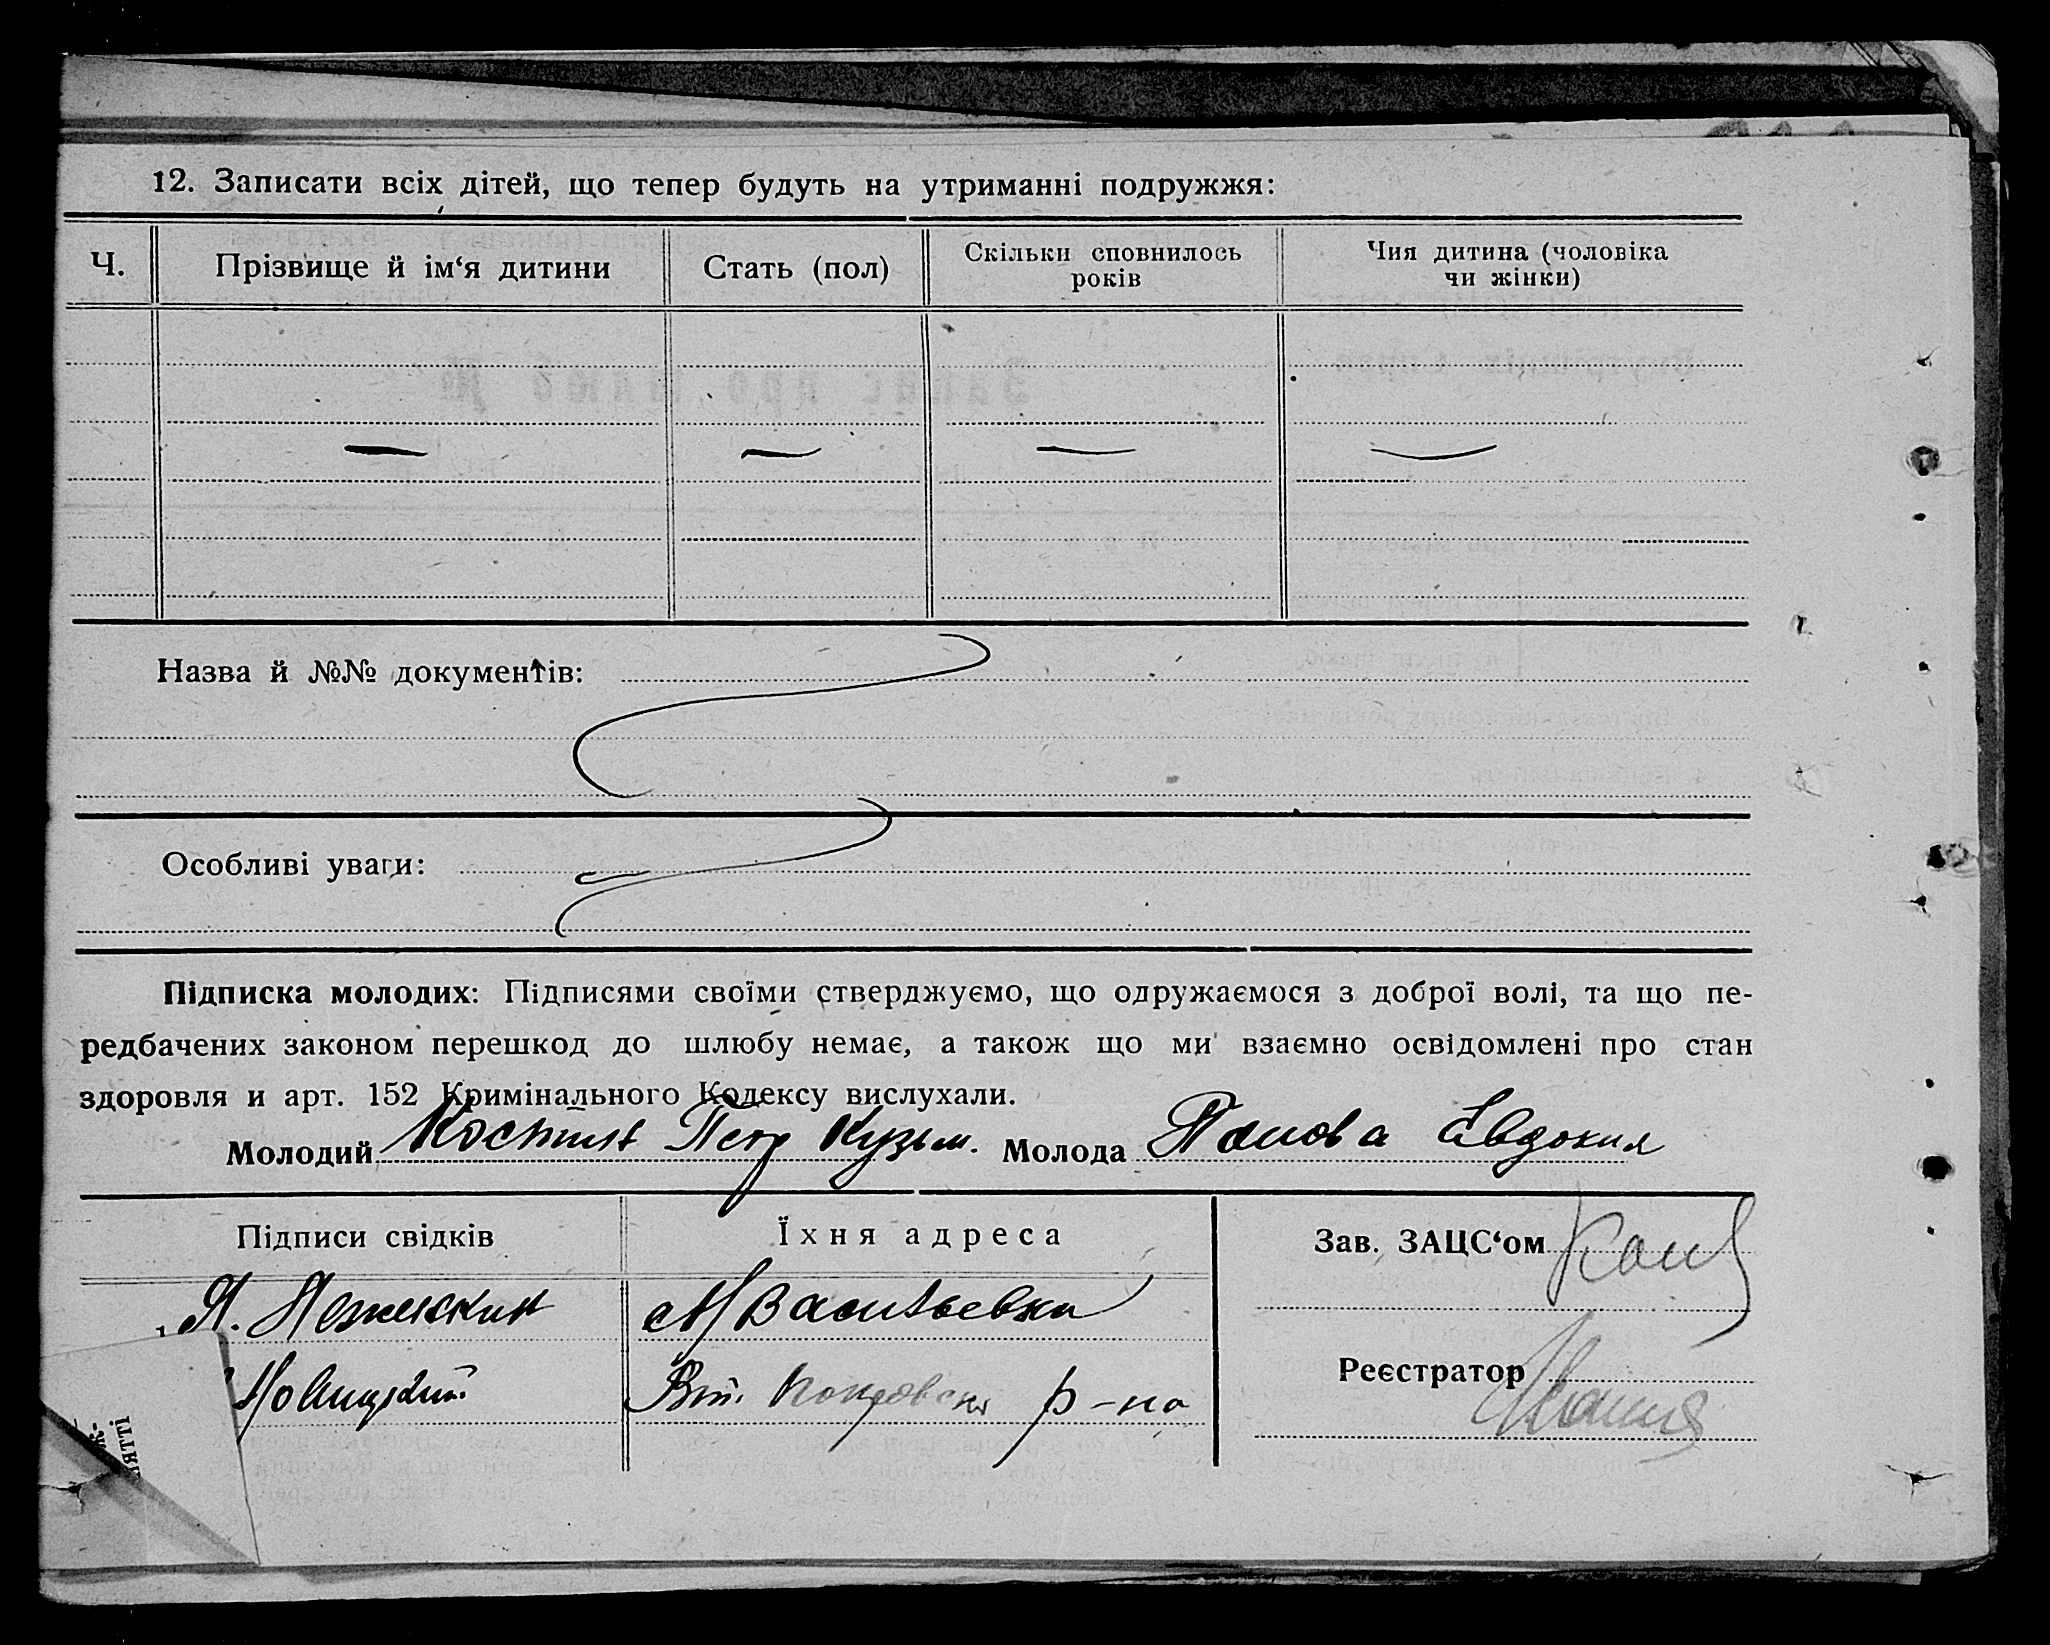 12. Записати всіх дітей, що тепер будуть на утриманні подружжя:
Ч. Прізвище й ім‘я дитини Стать (пол) Скільки сповнилось років Чия дитина (чоловіка чи жінки)
— — — —
Назва й №№ документів:
Особливі уваги:
Підписка молодих: Підписями своїми стверджуємо, що одружаємося з доброї волі, та що пе-
редбачених законом перешкод до шлюбу немає, а також що ми взаємно освідомлені про стан
здоровля и арт. 152 Кримінального Кодексу вислухали.
Молодий Петр Кузьм. Молода Панова Евдокия
Підписи свідків Їхня адреса Зав. ЗАЦС‘ом
П. Васильевка
Новицкий Покровск р-на Реєстратор